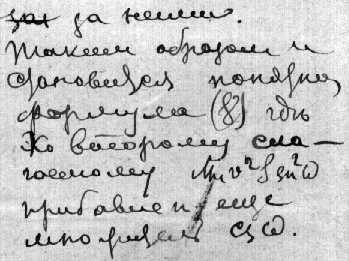 за ними.
Таким образом и
становится понятна
формула (8) где
Ко второму сла-
гаемому
прибавлен еще
множитель